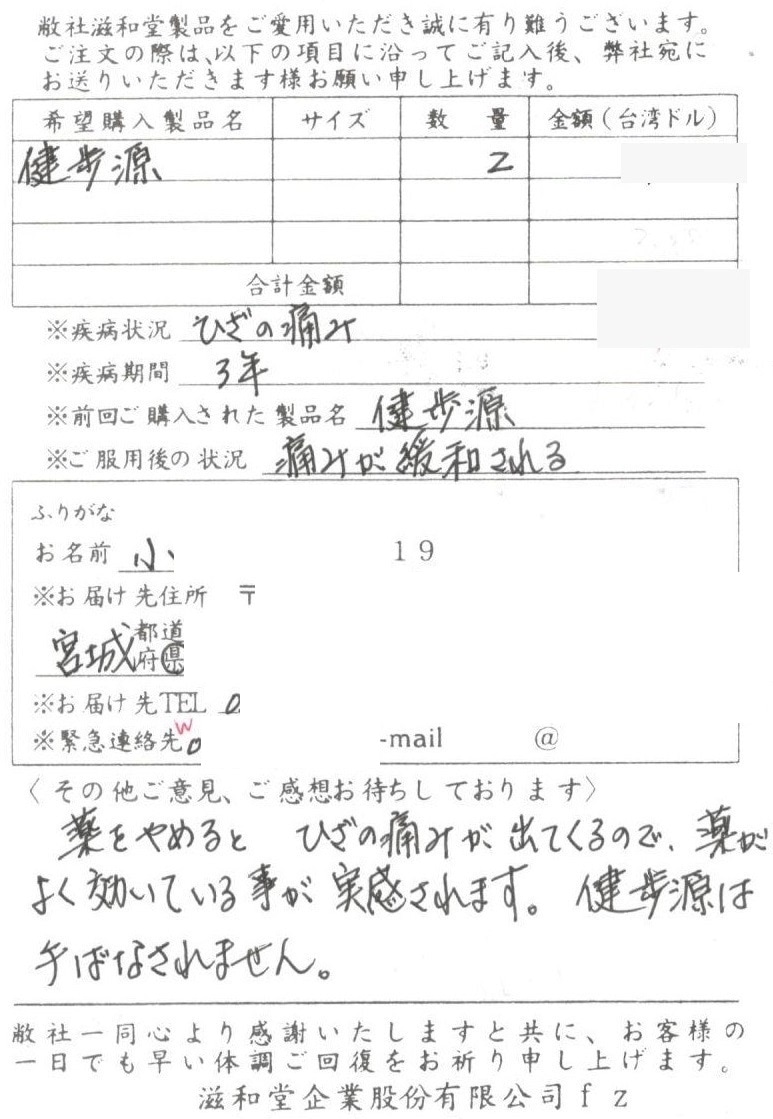 敝社滋和堂製品をご愛用いただき誠に有り難うございます。
ご注文の際は、以下の項目に沿ってご記入後、弊社宛に
お送りいただきます様お願い申し上げます。
希望購入製品名 サイズ 数 量 金額(台湾ドル)
健步源 2
合計金額
※疾病状況 ひざの痛み
※疾病期間 3年
※前回ご購入された製品名 健步源
※ご服用後の状況 痛みが緩和される
ふりがな
お名前 小 19
※お届け先住所 〒
宮城 都道
府県
※お届け先TEL 0
w
※緊急連絡先 0 -mail @
〈その他ご意見、ご感想お待ちしております〉
薬をやめると ひざの痛みが出てくるので、薬が
よく効いている事が実感されます。 健步源は
手ばなされません。
敝社一同心より感謝いたしますと共に、お客様の
一日でも早い体調ご回復をお祈り申し上げます。
滋和堂企業股份有限公司fz